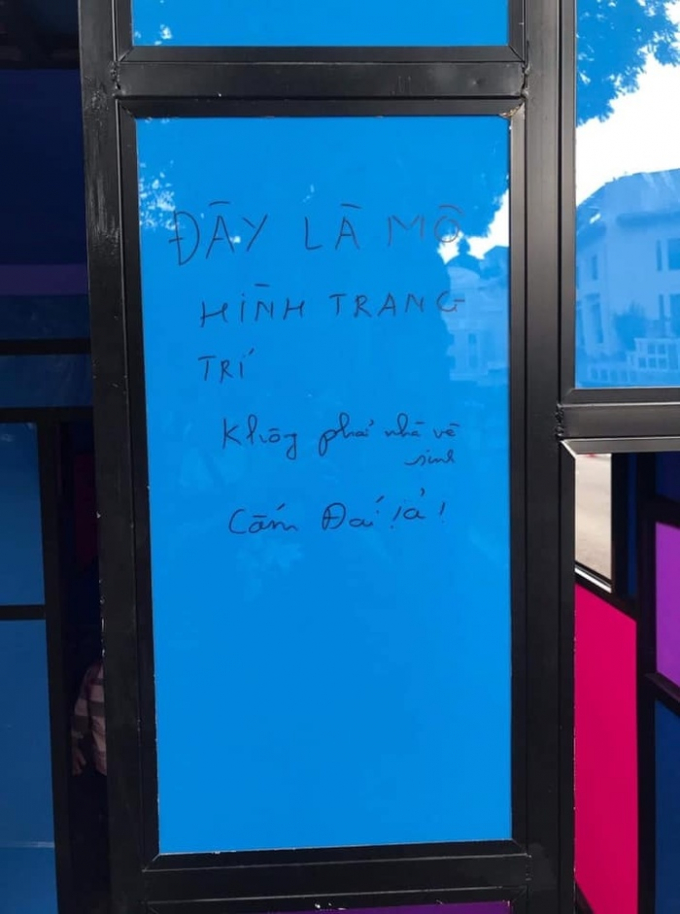 ĐÂY LÀ MÔ
HÌNH TRANG
TRÍ
Không phải nhà vệ
sinh
Cấm Đái ỉa!